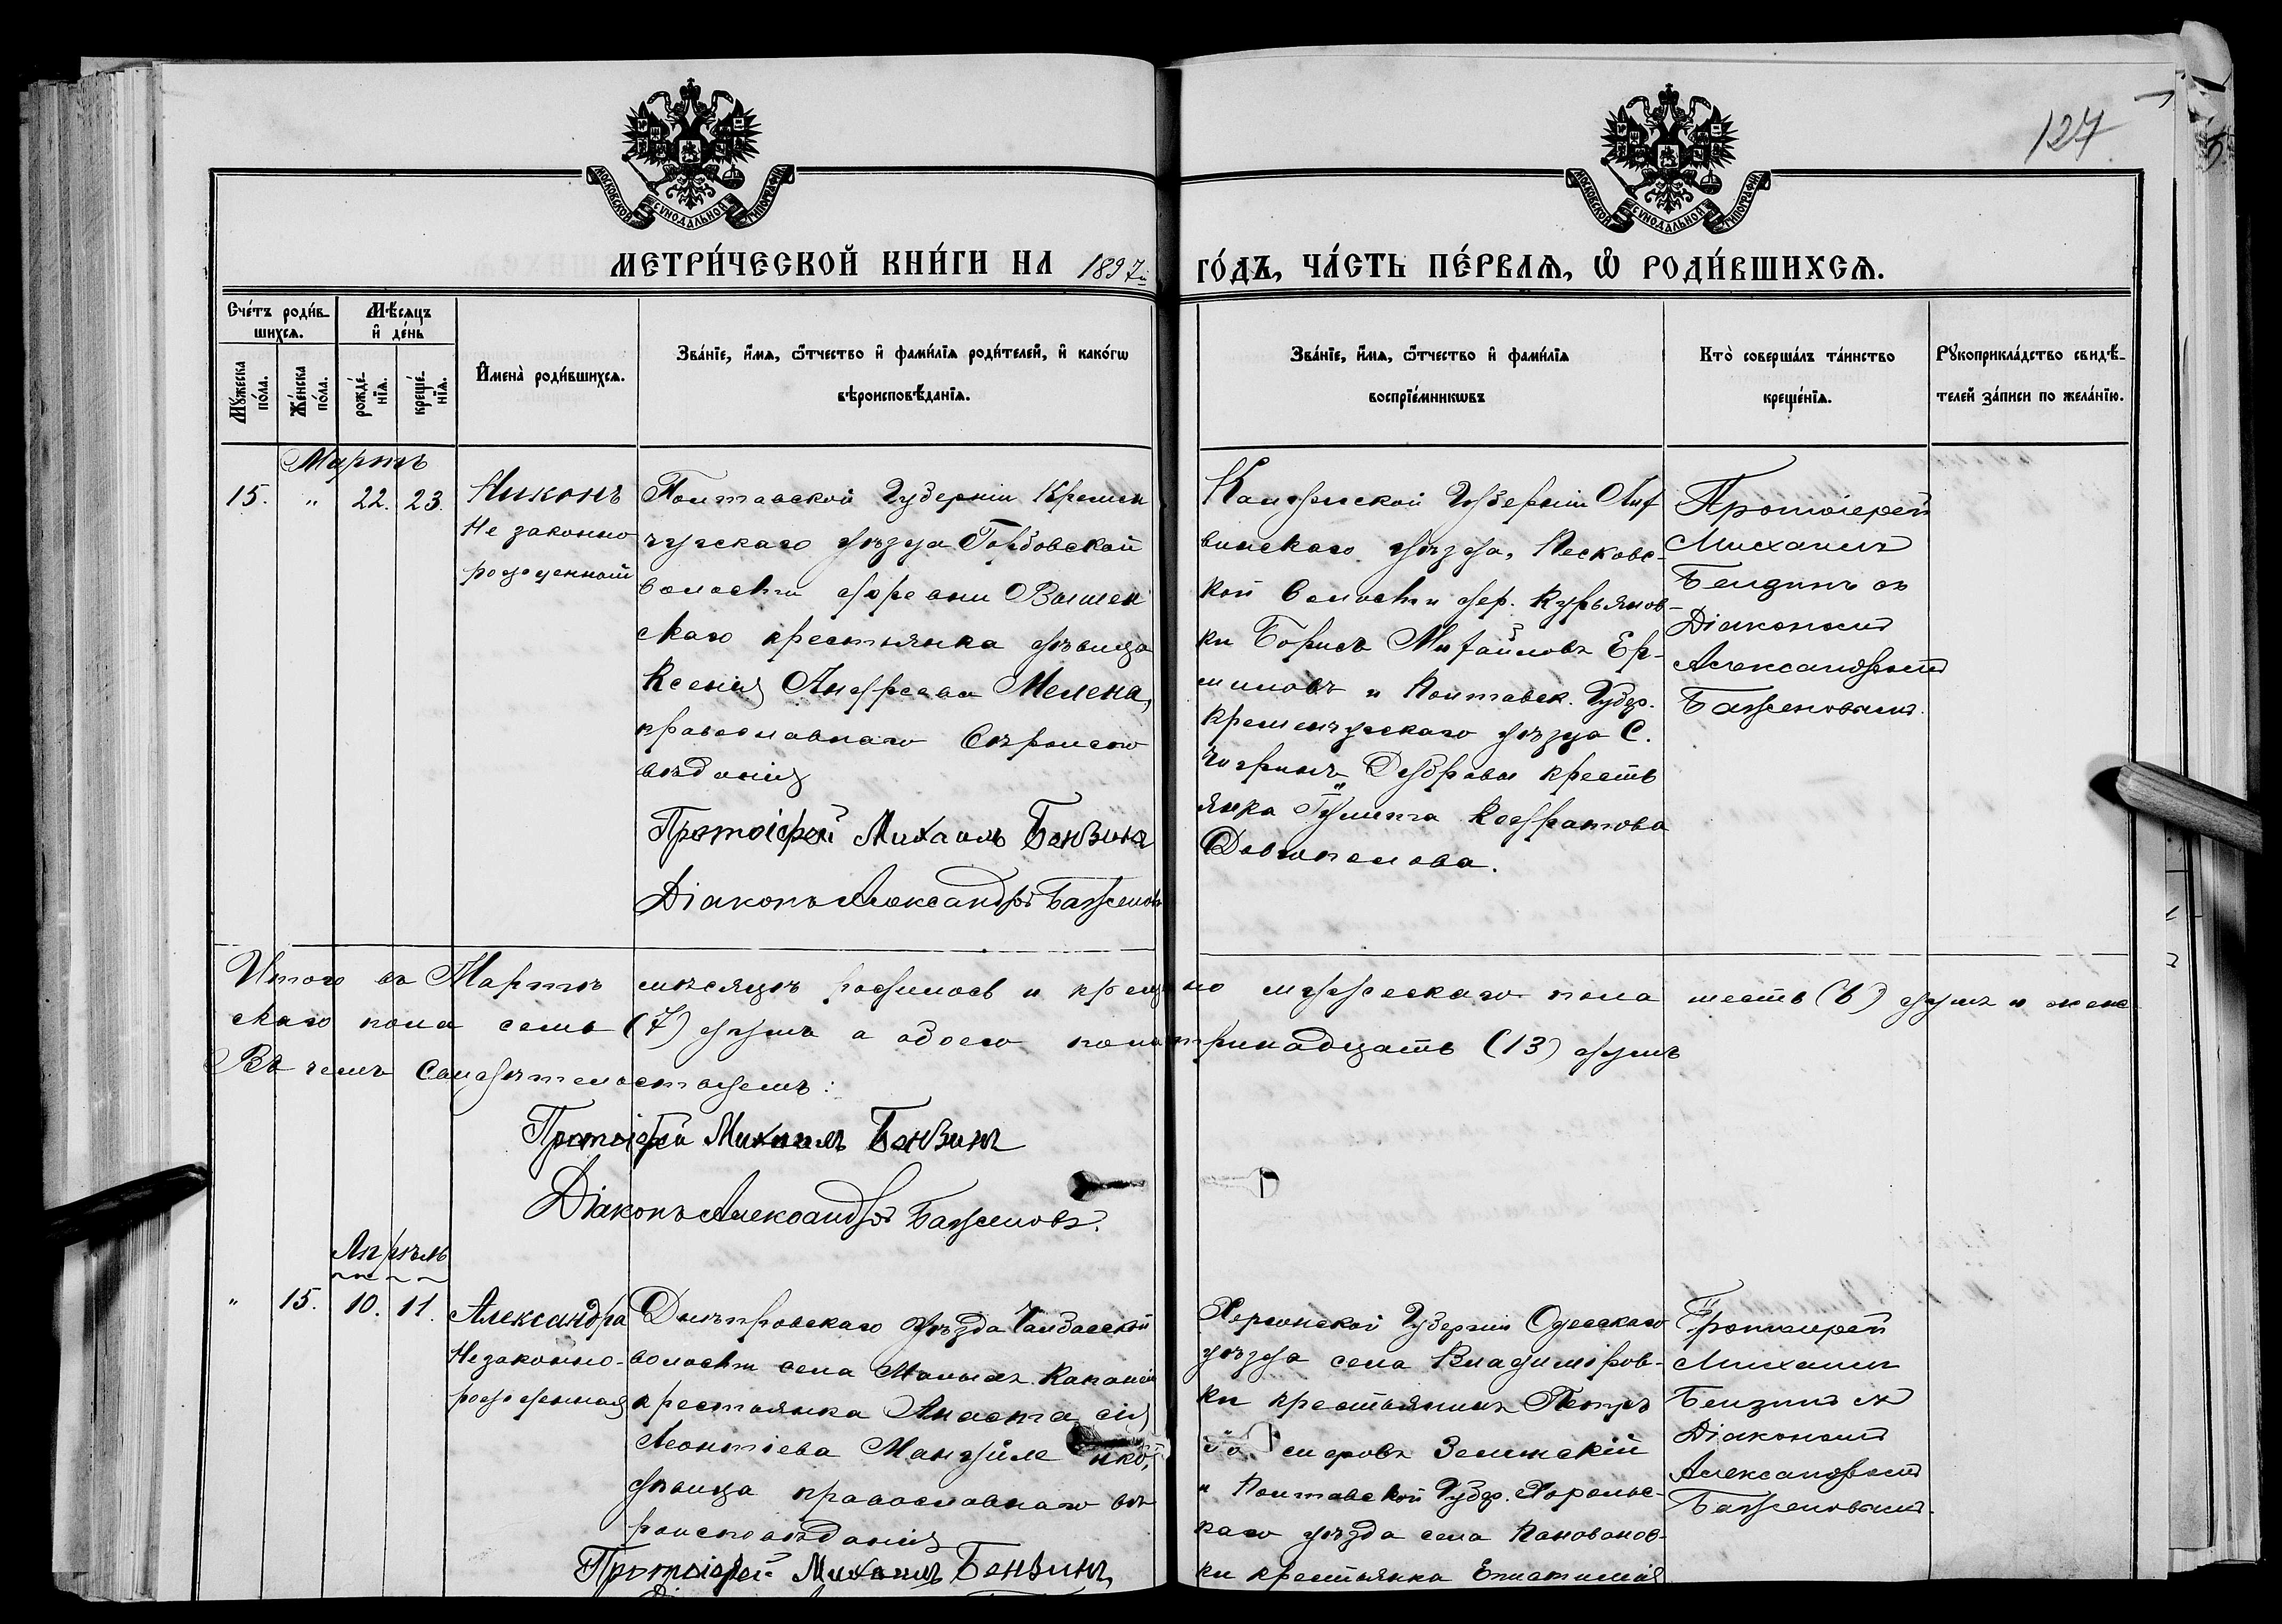 127
МОСКОВСКОЙ СѴНОДАЛЬНОЙ ТИПОГРАФІИ
МОСКОВСКОЙ СѴНОДАЛЬНОЙ ТИПОГРАФІИ
МЕТРИ́ЧЕСКОЙ КНИ́ГИ НА 1897й ГО́ДЪ, ЧА́СТЬ ПЕ́РВАѦ, Ѽ РОДИ́ВШИХСѦ.
Сче́тъ роди́вшихсѧ.
Мѣ́сѧцъ и҆ де́нь
Мꙋ́жеска по́ла.
Же́нска по́ла.
рожде́нїѧ.
креще́нїѧ.
И҆мена̀ роди́вшихсѧ.
Зва́нїе, и҆́мѧ, ѻ҆́тчество и҆ фами́лїѧ роди́телей, и҆ како́гѡ
вѣроисповѣ́данїѧ.
Зва́нїе, и҆́мѧ, ѻ҆́тчество и҆ фами́лїѧ
воспрїе́мникѡвъ
Кто̀ соверша́лъ та́инство
креще́нїѧ.
Рꙋкоприкла́дство свидѣ́-
телей за́писи по жела́нїю.
Мартъ
15. " 22. 23.
Никонъ
Не законно
рожденный
Полтавской Губерніи Кремен
чугскаго уѣзда
волости деревни
скаго крестьянка дѣвица
Ксенія Андреева Мелена,
православнаго вѣроиспо
вѣданія
Протоіерей Михаилъ Бензинъ
Діаконъ Александръ Баженовъ
Калужской Губерніи Лих
винскаго уѣзда, Песковс-
кой волости дер. Курьянов-
ки Борисъ Михайловъ Ер-
миловъ и Полтавск. Губер.
Кременчугскаго уѣзда С.
Чигринъ Дубровы кресть
янка Кодратова
Протоіерей
Михаилъ
Бензинъ съ
Діакономъ
Александромъ
Баженовымъ.
Итого въ Мартѣ мѣсяцѣ родилось и крещено мужескаго пола шесть (6) душъ и женс
скаго пола семь (7) душъ а обоего пола тринадцать (13) душъ
Въ чемъ Свидѣтельствуемъ:
Протоіерей Михаилъ Бензинъ
Діаконъ Александръ Баженовъ.
Апрѣль
" 15. 10. 11.
Александра
Незаконно-
рожденная
Днѣпровскаго Уѣзда Чалбасской
волости села Малыхъ Копаней
крестьянка Анастасія
Леонтіева Мануйленко,
дѣвица православнаго вѣ
роисповѣданія
Протоіерей Михаилъ Бензинъ
Херсонской Губерніи Одесскаго
уѣзда села Владиміров-
ки крестьянинъ Петръ
сифовъ Зелинскій
и Полтавской Губер. Хорольс-
каго уѣзда села
ки крестьянка Епистимія
Протоіерей
Михаилъ
Бензинъ съ
Діакономъ
Александромъ
Баженовымъ.